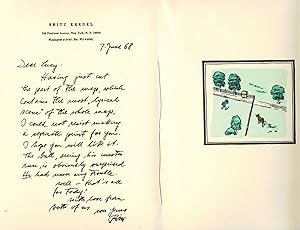 FRITZ KREDEL
7. June 68
Dear Lucy:
Having just cut
the part of the map, which
contains the most „lyrical
scene" of the whole map,
I could not resist making
a separate print for you.
I hope you will like it.
The bull, seeing his master
run, is obviously surprised
He had never any trouble
well – that is all
for Today!
with love from
both of us